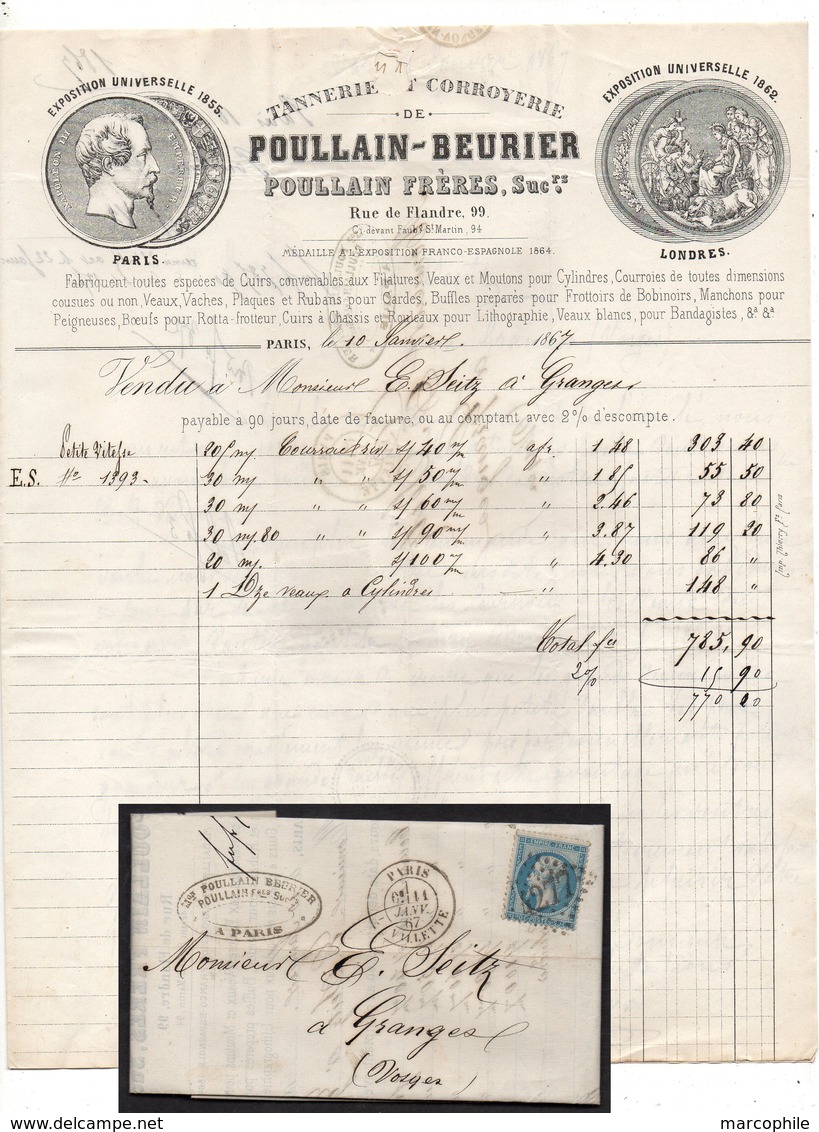 EXPOSITION UNIVERSELLE 1855.
NAPOLEON III EMPEREUR
PARIS.
TANNERIE ET CORROYERIE
DE
POULLAIN-BEURIER
POULLAIN FRÈRES, Sucrs.
Rue de Flandre, 99.
Ci-devant Faubg St Martin, 94
MÉDAILLE A L'EXPOSITION FRANCO-ESPAGNOLE 1864.
EXPOSITION UNIVERSELLE 1862.
LONDRES.
Fabriquent toutes espèces de Cuirs, convenables aux Filatures, Veaux et Moutons pour Cylindres, Courroies de toutes dimensions
cousues ou non, Veaux, Vaches, Plaques et Rubans pour Cardes, Buffles préparés pour Frottoirs de Bobinoirs, Manchons pour
Peigneuses, Bœufs pour Rotta-frotteur, Cuirs à Chassis et Rouleaux pour Lithographie, Veaux blancs, pour Bandagistes, &a &a
PARIS, le 10 Janvier 1867
Vendu à Monsieur E. Seitz à Granges
payable à 90 jours, date de facture, ou au comptant avec 2% d'escompte.
Petite Vitesse 205 m/ s/ 40 m/m 1.48 303 40
E.S. No 1393 30 m/ " " s/ 50 m/m " 1.85 55 50
30 m/ " " s/ 60 m/m " 2.46 73 80
30 m/ 80 " " s/ 90 m/m " 3.87 119 20
20 m/ s/ 100 m/m " 4.30 86 "
1 Dze veaux à Cylindres " 148 "
Total 785, 90
2% 15 90
770 00
Imp. Thierry Fs Paris
Mon POULLAIN BEURIER
POULLAIN Fres Sucrs
A PARIS
PARIS
11
JANV.
67
LA VILLETTE
EMPIRE FRANC
Monsieur E. Seitz
à Granges
(Vosges)
marcophile